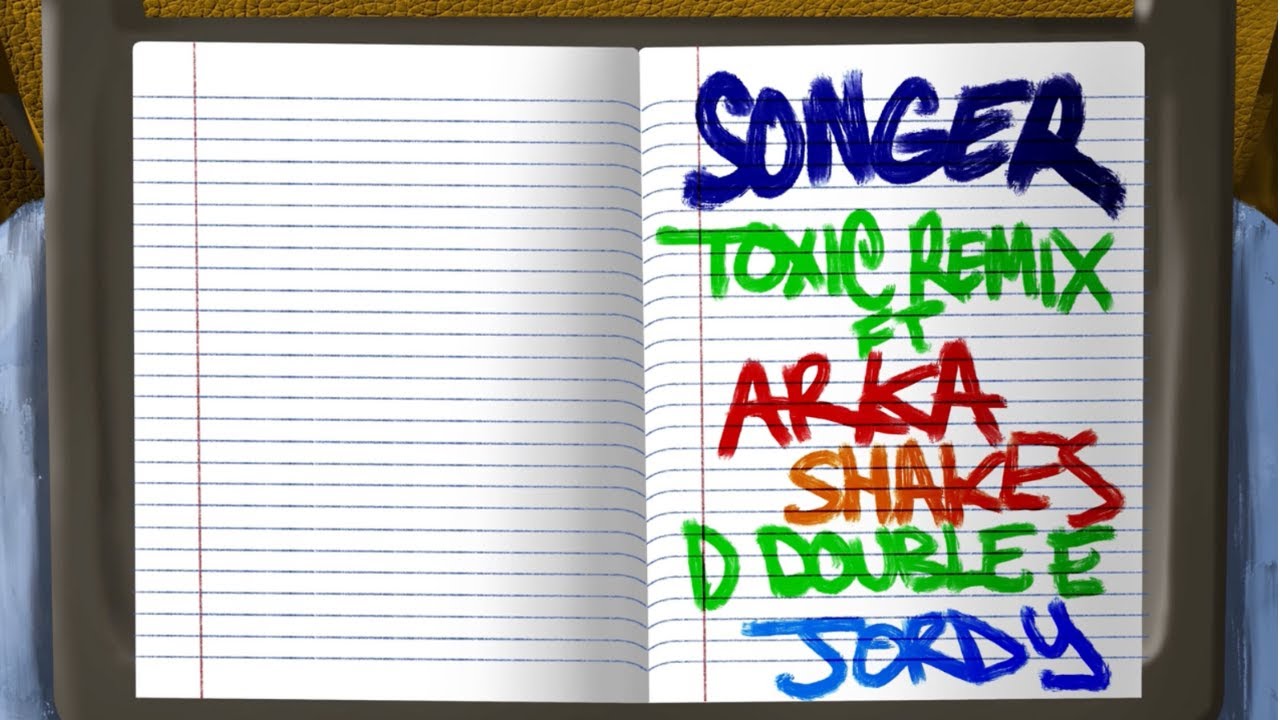 SONGER
TOXIC REMIX
FT
ARKA
SHAKES
D DOUBLE E
JORDY